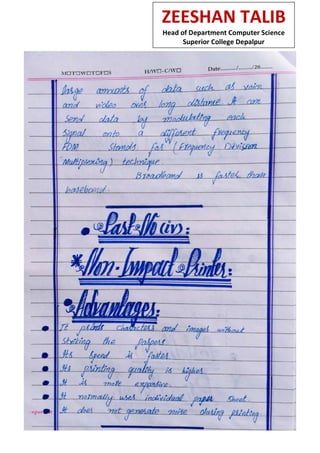 ZEESHAN TALIB
Head of Department Computer Science
Superior College Depalpur
M□T□W□T□F□S H/W□-C/W□ Date____/____/20____
large amounts of data such as voice
and video over long distance. It can
send data by modulating each
signal onto a different frequency
FDM stands for (Frequency Division
Multiplexing) technique
Broadband is faster than
baseband.
Past No
Non-Impact Printer:
Advantages:
It prints characters and images without
striking the papers
Its speed is faster
Its printing quality is higher
It is more expensive.
It normally uses individual paper sheet
It does not generate noise during printing